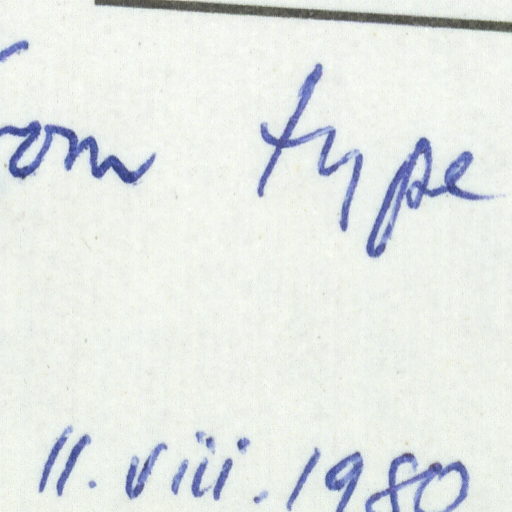 from type
11.viii.1980